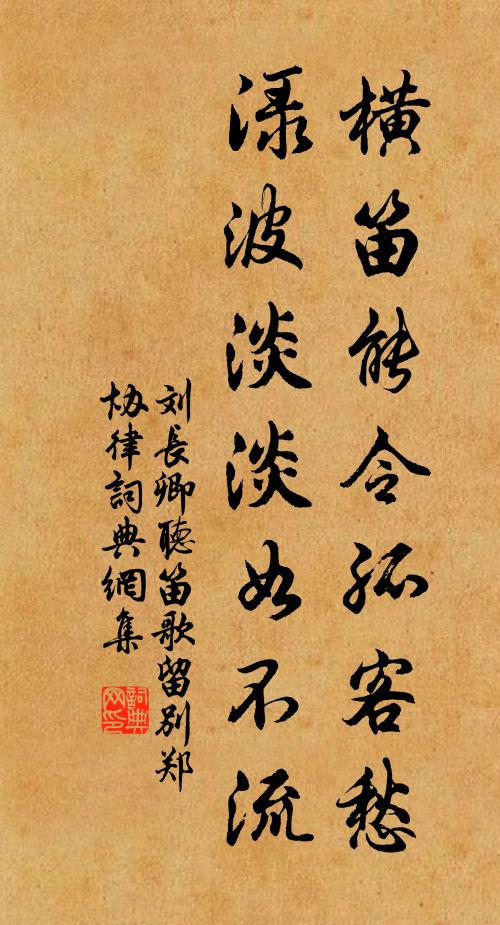 横笛能令孤客愁
渌波淡淡如不流
刘長卿聽笛歌留别郑
协律詞典網集
詞典网印